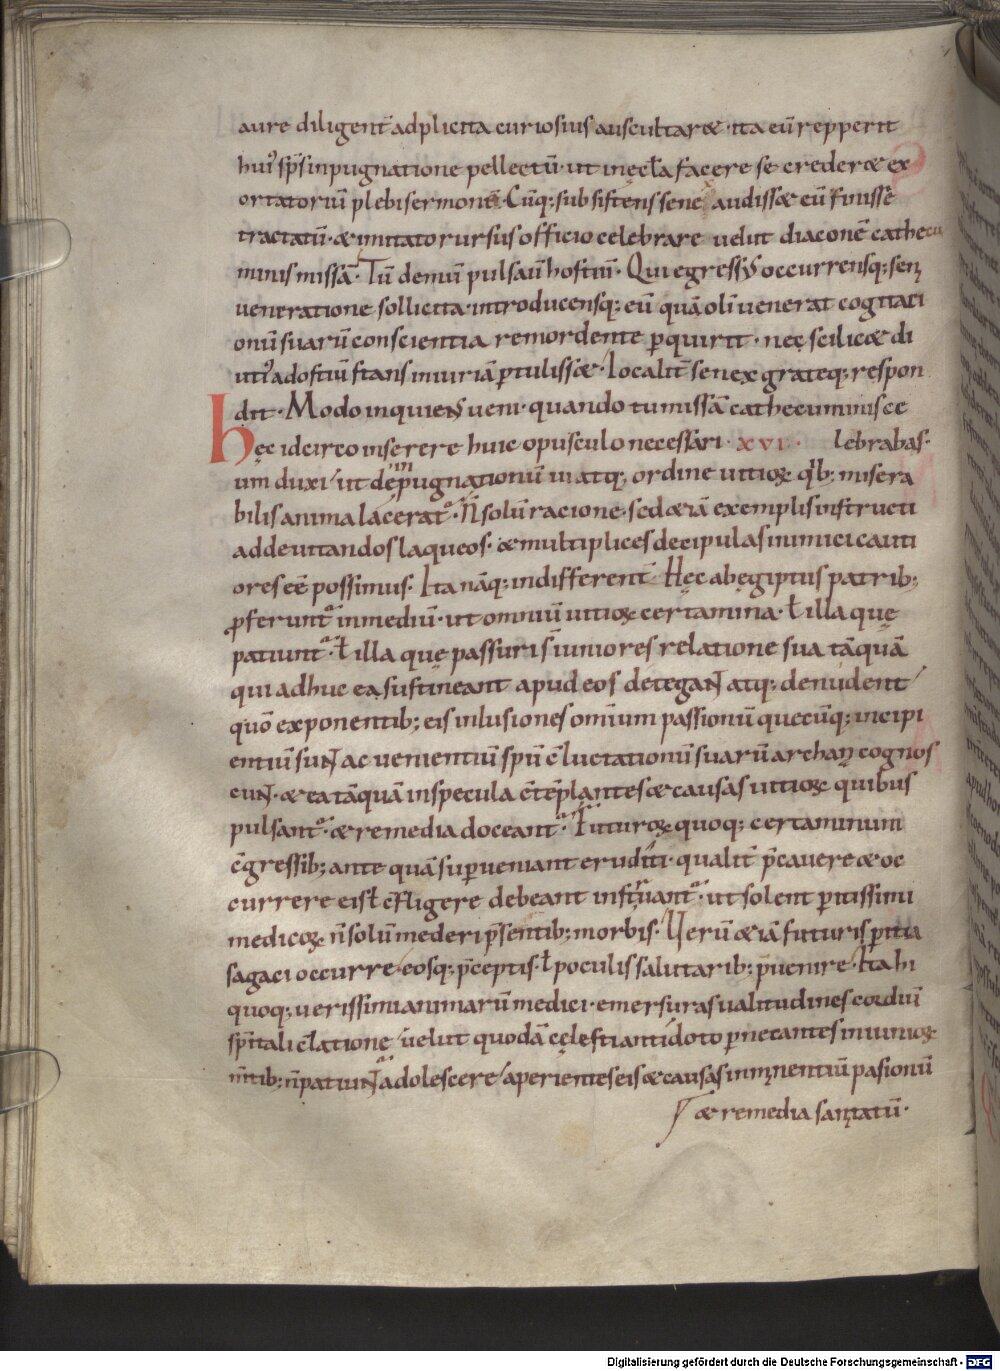 aure diligent̄ adplicita curiosius auscultaret · ita eū repperit
hui᾽ sp̄s inpugnatione pellectū · ut in ęcl̄a facere se crederet ex
ortatoriū plebi sermonē · Cūq; subsistens senex audisset eū finisse
tractatū · et mutato rursus officio celebrare uelut diaconē cathecu
minis missā · Tū demū pulsauit hostiū · Qui egressus occurrensq; seni
ueneratione sollicita · introducensq; eū quā oli᷑ venerat cogitati
onū suarū conscientia remordente p̱quirit · nec scilicet di
uti᾽ ad ostiū stans iniuriā p̱tulisset · Ioculari᷑ senex grateq; respon
dit · Modo inquiens ueni · quando tu missā cathecuminis ce
hęc idcirco inserere huic opusculo necessari · xvi · lebrabas ·
um duxi ut de inpugnationū ui atq; ordine uitioꝝ qb; misera
bilis anima lacerat᷑ · n̄ solū racione · sed etiā exemplis instructi
ad deuitandos laqueos · et multiplices decipulas inimici cauti
ores eē possimus · Ita nāq; indifferent̄ Hęc ab egiptus patrib;
ꝓferunt᷑ in mediū · ut omniū uitioꝝ certamina · ł illa quę
patiunt᷑ · ł illa quę passuri s̄ iuniores relatione sua tāquā
qui adhuc ea sustineant apud eos detegant atq; denudent
quō exponentib; eis inlusiones omnium passionū quecūq; incipi
entiū sunt ac uenientiū spū c̄ luctationū suarū archana cognos
cunt · et ea tāquā in specula c̄tēplantes et causas uitioꝝ quibus
pulsant᷑ · et remedia doceant᷑ · Futuroꝝ quoq; certaminum
c̄gressib; ante quā sup̱ueniant eruditi · qualit̄ p̄cauere et oc
currere eis ł c̄fligere debeant instruant᷑ · ut solent p̱itissimi
medicoꝝ n̄ solū mederi p̄sentib; morbis · Uerū etiā futuris p̱itia
sagaci occurre · eosq; p̄ceptis · ł poculis salutarib; p̄uenire · Ita hi
quoq; uerissimi animarū medici · emersuras ualitudines cordiū
sp̄itali c̄latione / uelut quodā cęlesti antidoto p̱necantes in iunioꝝ
m̄tib; n̄ patiunt᷑ adolescere / aperientes eis et causas inminentiū pasionū
et remedia sanitatū ·
Digitalisierung gefördert durch die Deutsche Forschungsgemeinschaft - DFG